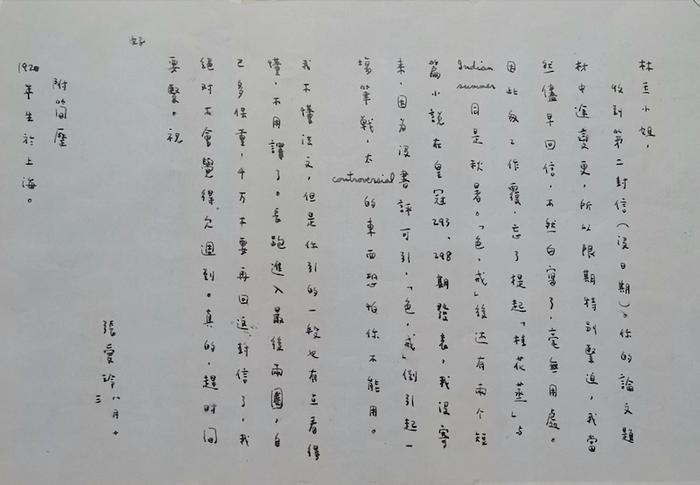 林主小姐,
收到第二封信(沒日期)。你的論文題
材中途變更,所以限期特別緊迫,我當
然儘早回信,不然白寫了,毫無用處。
因此 作覆,忘了提起「桂花蒸」与
Indian summer 同是秋暑。「色,戒」後还有兩个短
篇小說在皇冠293,298期發表,我沒寄
來,因為沒書評可引,「色,戒」倒引起一
場筆戰,太controversial的東西恐怕你不能用。
我不懂法文,但是你引的一段也有点看得
懂,不用譯了。長跑進入最後兩圈,自
己多保重,千万不要再回這封信了,我
絕對不會覺得欠週到。真的,趕時间
要緊。祝
好
張愛玲 八月十三
附簡歷
1920年生於上海。